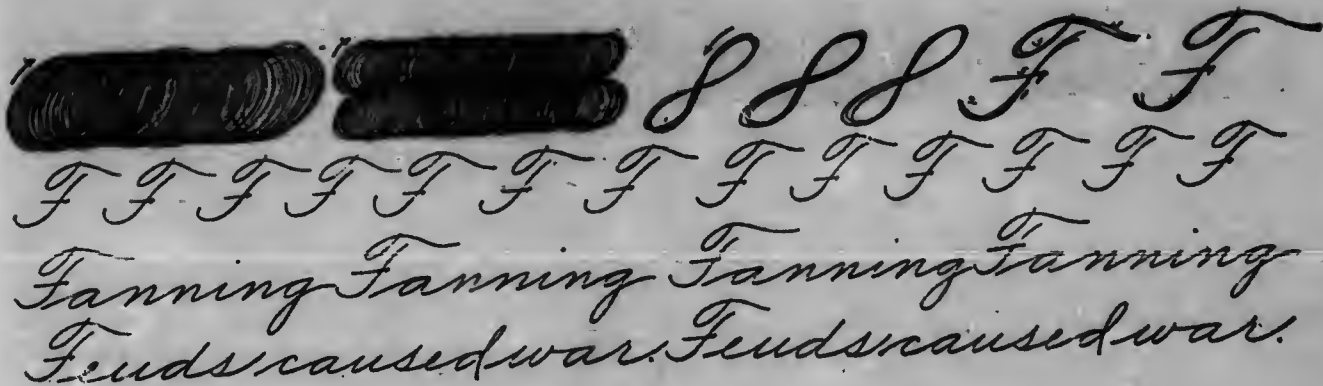 8 8 8 F F
F F F F F F F F F F F F F
Fanning Fanning Fanning Fanning
Feuds caused war. Feuds caused war.